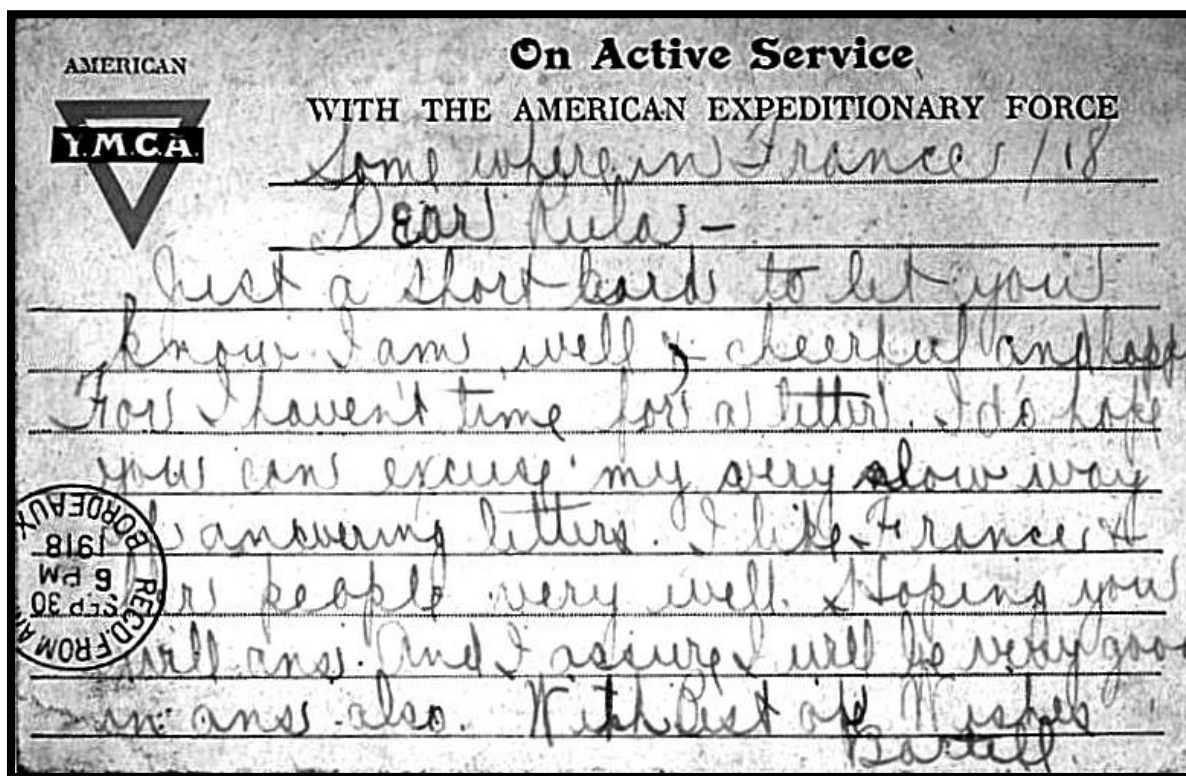 AMERICAN
Y.M.C.A.
On Active Service
WITH THE AMERICAN EXPEDITIONARY FORCE
Some where in France /18
Dear Rula -
Just a short card to let you
know I am well & cheerful and happy
For I haven't time for a letter. I do hope
you can excuse my very slow way
ancwering letters. I like France &
people very well. Hoping you
will ans. And I assure I will be very good
in ans also. With Best of Wishes
BORDEAUX
1918
6 PM
SEP 30
REC'D. FROM